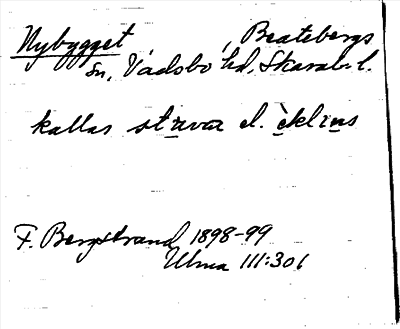 Nybygget, Beatebergs
sn, Vadsbo hd, Skarab. l.
kallas stuva el. èklins
F. Bergstrand 1898-99
Ulma 111:301